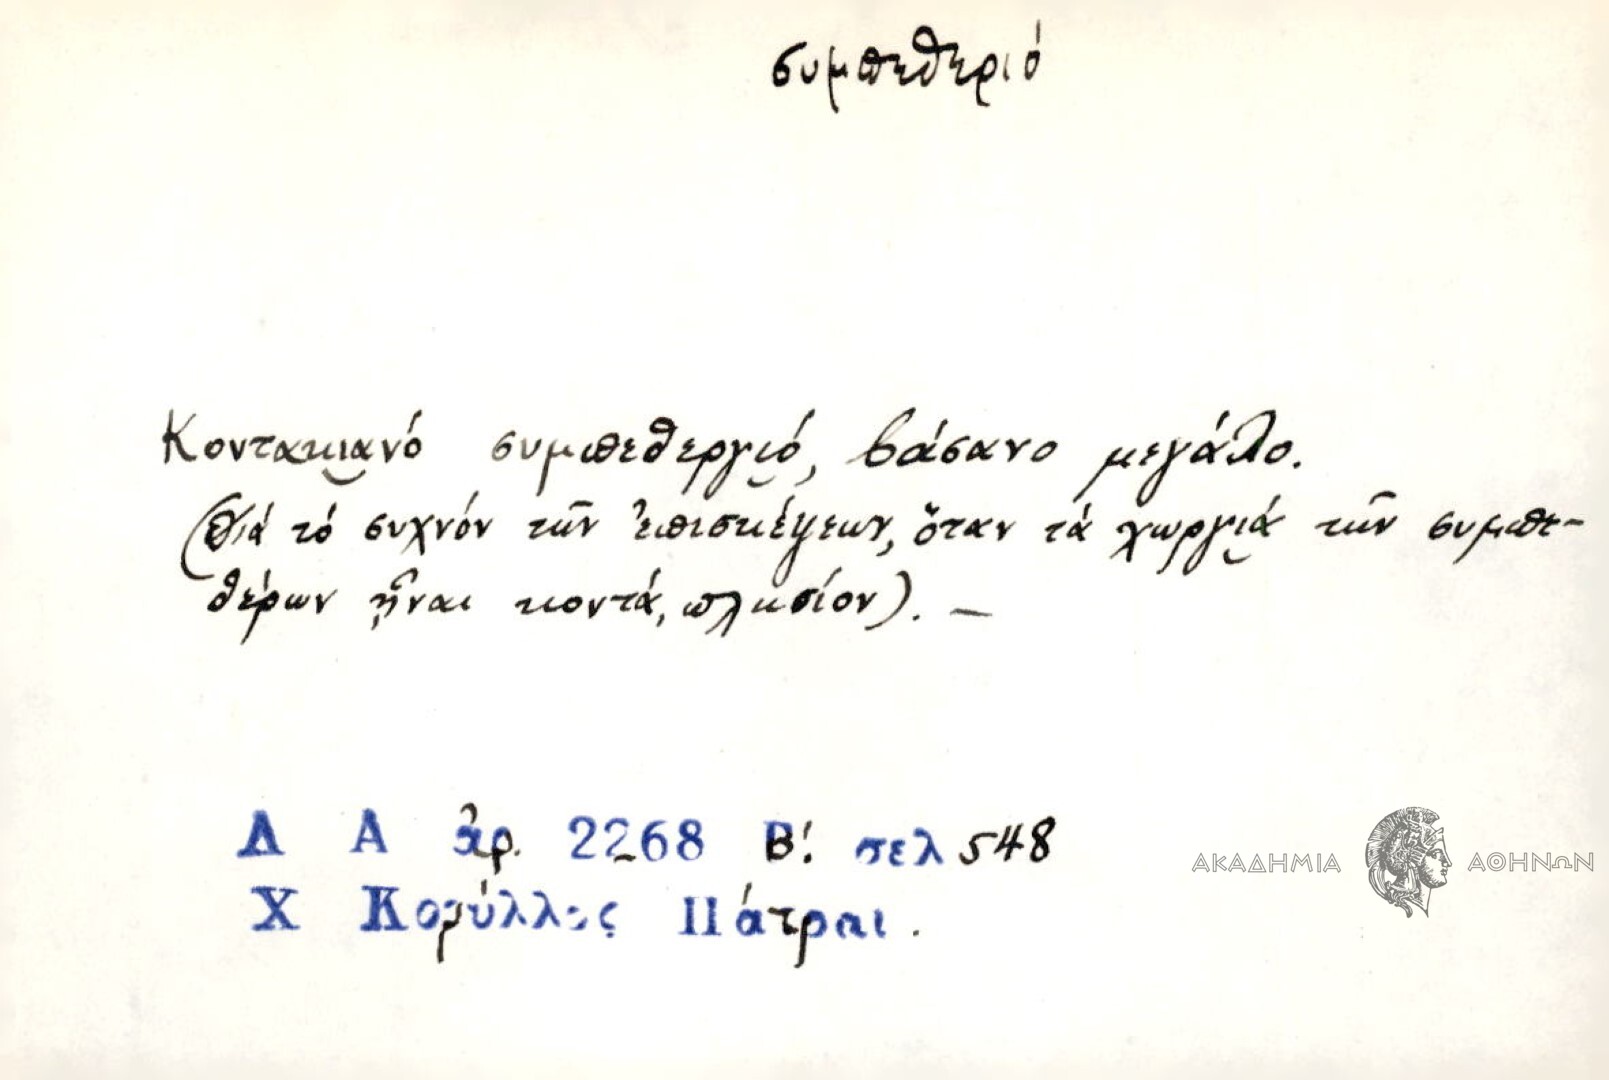 συμπεθεριό
Κοντακιανό συμπεθεργιό, βάσανο μεγάλο.
(Διά τό συχνόν τῶν ἐπισκέψεων, ὅταν τά χωργιά τῶν συμπε-
θέρων ἦναι κοντά, πλησίον). —
Λ Α ἀρ. 2268 Β! σελ 548
Χ Κορύλλος Πάτραι.
ΑΚΑΔΗΜΙΑ ΑΘΗΝΩΝ